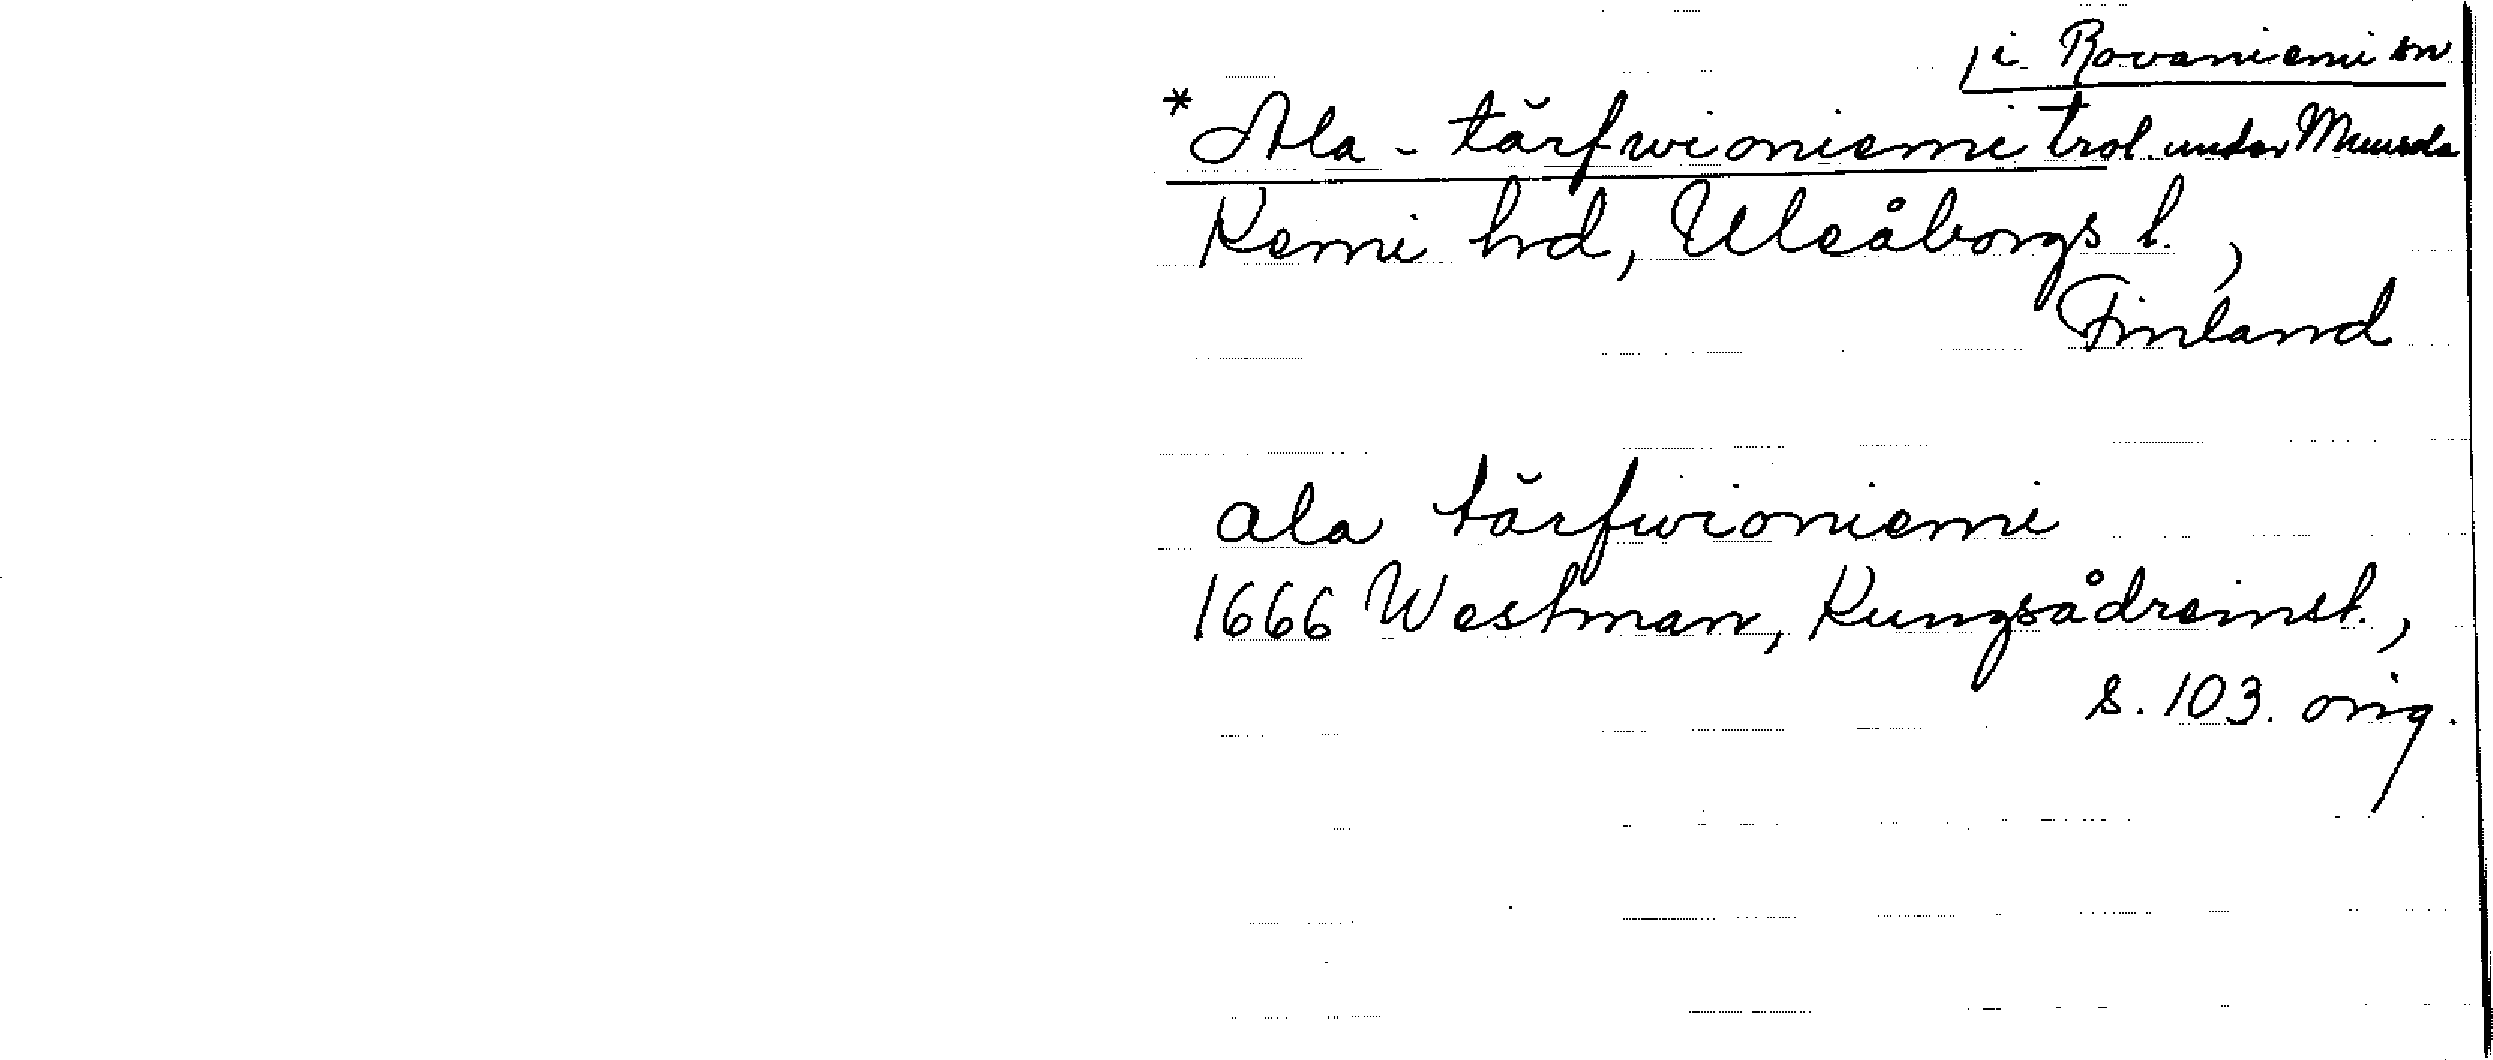 i Rovaniemi sn
*Ala-tärfwioniemi trol. under Muurola
Kemi hrd, Uleåborgs l.,
Finland
ala tärfwioniemi
1666 Westman, Kungsådreinst.,
s. 103. orig.